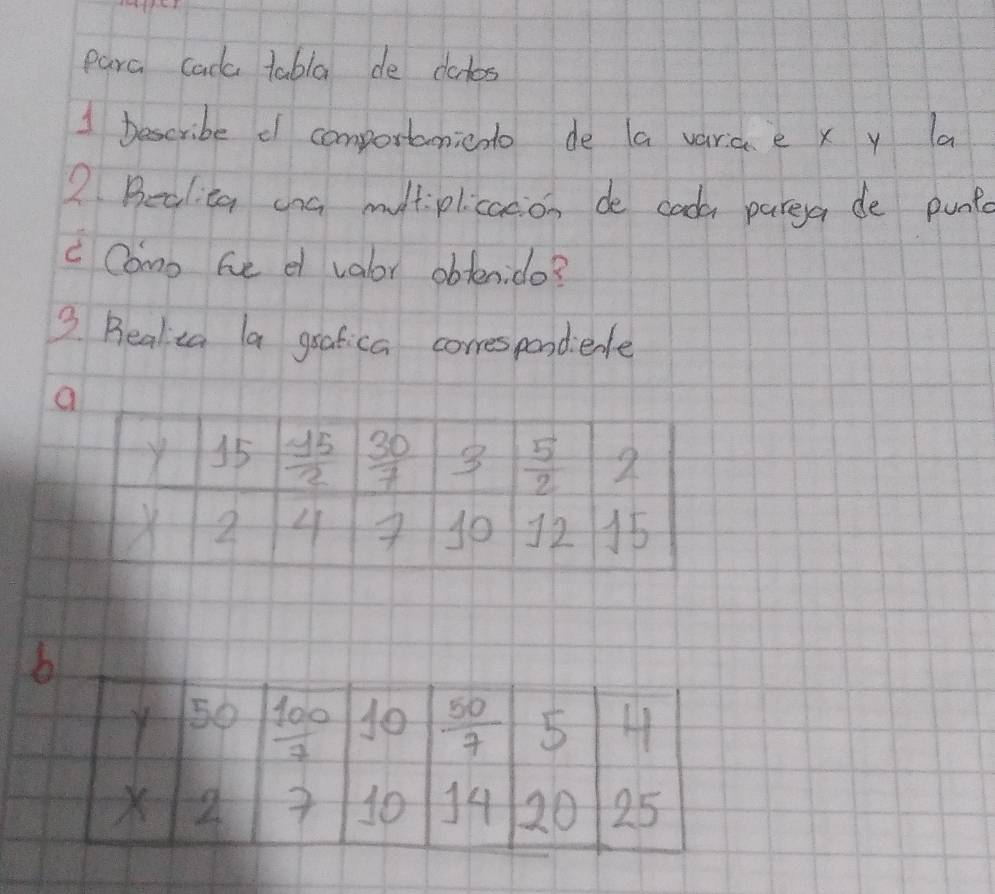 para cada tabla de datos
1 Describe el comportamiento de la variable x y la
2. Realiza una multiplicación de cada pareja de punto
¿ Cómo fue el valor obtenido?
3. Realiza la grafica correspondiente
a
y 15 15/2 30/7 3 5/2 2
x 2 4 7 10 12 15
b
y 50 100/7 10 50/7 5 4
x 2 7 10 14 20 25